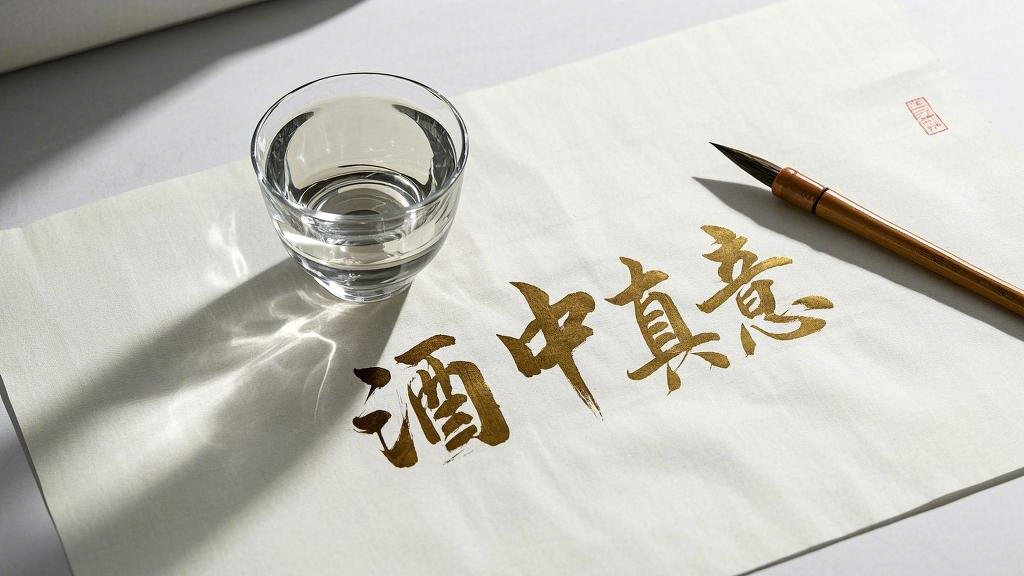 酒中真意